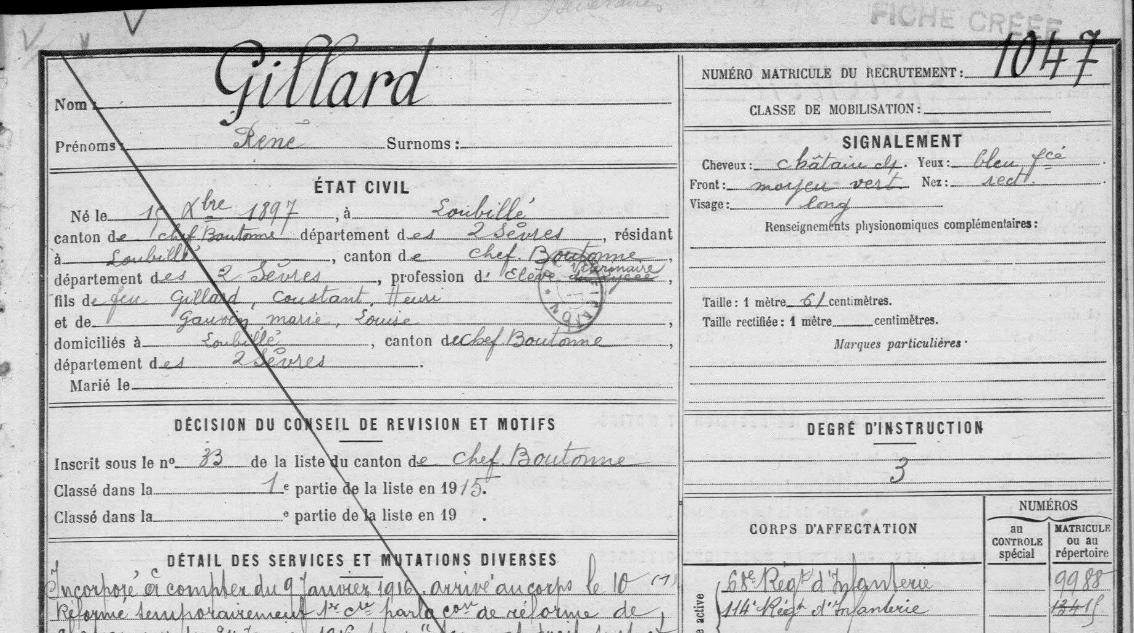 FICHE CRÉÉE
Nom : Gillard
Prénoms : René Surnoms :
ÉTAT CIVIL
Né le 15 Xbre 1897, à Loubillé
canton de Chef Boutonne département des 2 Sèvres, résidant
à Loubillé, canton de Chef. Boutonne,
département des 2 Sèvres, profession d' Elève Vétérinaire
fils de feu Gillard, Constant, Henri
et de Gauvin marie, Louise,
domiciliés à Loubillé, canton de Chef Boutonne,
département des 2 Sèvres.
Marié le
DÉCISION DU CONSEIL DE REVISION ET MOTIFS
Inscrit sous le nº 33 de la liste du canton de Chef. Boutonne
Classé dans la 1e partie de la liste en 1915.
Classé dans la e partie de la liste en 19 .
DÉTAIL DES SERVICES ET MUTATIONS DIVERSES
Incorporé à compter du 9 Janvier 1916, arrivé au corps le 10
Réformé temporairement 1re par la con de réforme de
NUMÉRO MATRICULE DU RECRUTEMENT : 1047
CLASSE DE MOBILISATION :
SIGNALEMENT
Cheveux : châtain Yeux : bleu fcé
Front : moyen vert. Nez : rect.
Visage : long
Renseignements physionomiques complémentaires :
Taille : 1 mètre 61 centimètres.
Taille rectifiée : 1 mètre centimètres.
Marques particulières .
DEGRÉ D'INSTRUCTION
3
CORPS D'AFFECTATION
NUMÉROS
au CONTROLE spécial
MATRICULE ou au répertoire
active
68e Régt d'Infanterie 9988
114e Régt d'Infanterie